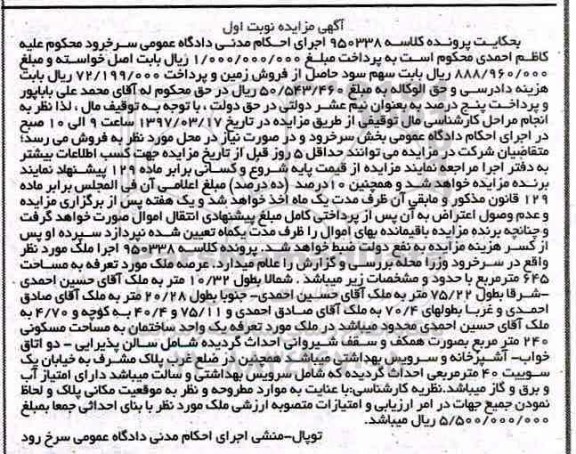 آگهی مزایده نوبت اول
بحکایت پرونده کلاسه ۹۵۰۳۳۸ اجرای احکام مدنی دادگاه عمومی سرخرود محکوم علیه
کاظم احمدی محکوم است به پرداخت مبلغ ۱/۰۰۰/۰۰۰/۰۰۰ ریال بابت اصل خواسته و مبلغ
۸۸۸/۹۶۰/۰۰۰ ریال بابت سهم سود حاصل از فروش زمین و پرداخت ۷۲/۱۹۹/۰۰۰ ریال بابت
هزینه دادرسی و حق الوکاله به مبلغ ۵۰/۵۴۳/۴۶۰ ریال در حق محکوم له آقای محمد علی باباپور
و پرداخت پنج درصد به بعنوان نیم عشر دولتی در حق دولت ، با توجه به توقیف مال ، لذا نظر به
انجام مراحل کارشناسی مال توقیفی از طریق مزایده در تاریخ ۱۳۹۷/۰۳/۱۷ ساعت ۹ الی ۱۰ صبح
در اجرای احکام دادگاه عمومی بخش سرخرود و در صورت نیاز در محل مورد نظر به فروش می رسد؛
متقاضیان شرکت در مزایده می توانند حداقل ۵ روز قبل از تاریخ مزایده جهت کسب اطلاعات بیشتر
به دفتر اجرا مراجعه نمایند مزایده از قیمت پایه شروع و کسانی برابر ماده ۱۲۹ پیشنهاد نمایند
برنده مزایده خواهد شد و همچنین ۱۰درصد (ده درصد) مبلغ اعلامی آن فی المجلس برابر ماده
۱۲۹ قانون مذکور و مابقی آن ظرف مدت یک ماه اخذ خواهد شد و یک هفته پس از برگزاری مزایده
و عدم وصول اعتراض به آن پس از پرداختی کامل مبلغ پیشنهادی انتقال اموال صورت خواهد گرفت
و چنانچه برنده مزایده باقیمانده بهای اموال را ظرف مدت یکماه تعیین شده نپردازد سپرده او پس
از کسر هزینه مزایده به نفع دولت ضبط خواهد شد. پرونده کلاسه ۹۵۰۳۳۸ اجرا ملک مورد نظر
واقع در سرخرود وزرا محله بررسی و گزارش را اعلام میدارد. عرصه ملک مورد تعرفه به مساحت
۶۴۵ مترمربع با حدود و مشخصات زیر میباشد . شمالا بطول ۱۰/۳۲ متر به ملک آقای حسین احمدی
-شرقا بطول ۷۵/۲۲ متر به ملک آقای حسین احمدی- جنوبا بطول ۲۰/۲۸ متر به ملک آقای صادق
احمدی و غربا بطولهای ۷۰/۴ به ملک آقای صادق احمدی و ۷۵/۱۱ و ۴۰/۴ به کوچه و ۴/۷۰ به
ملک آقای حسین احمدی محدود میباشد در ملک مورد تعرفه یک واحد ساختمان به مساحت مسکونی
۲۴۰ متر مربع بصورت همکف و سقف شیروانی احداث گردیده شامل سالن پذیرایی - دو اتاق
خواب- آشپزخانه و سرویس بهداشتی میباشد همچنین در ضلع غرب پلاک مشرف به خیابان یک
سوییت ۴۰ مترمربعی احداث گردیده که شامل سرویس بهداشتی و سالت میباشد دارای امتیاز آب
و برق و گاز میباشد.نظریه کارشناسی:با عنایت به موارد مطروحه و نظر به موقعیت مکانی پلاک و لحاظ
نمودن جمیع جهات در امر ارزیابی و امتیازات منصوبه ارزشی ملک مورد نظر با بنای احداثی جمعا بمبلغ
۵/۵۰۰/۰۰۰/۰۰۰ ریال میباشد.
توپال-منشی اجرای احکام مدنی دادگاه عمومی سرخ رود